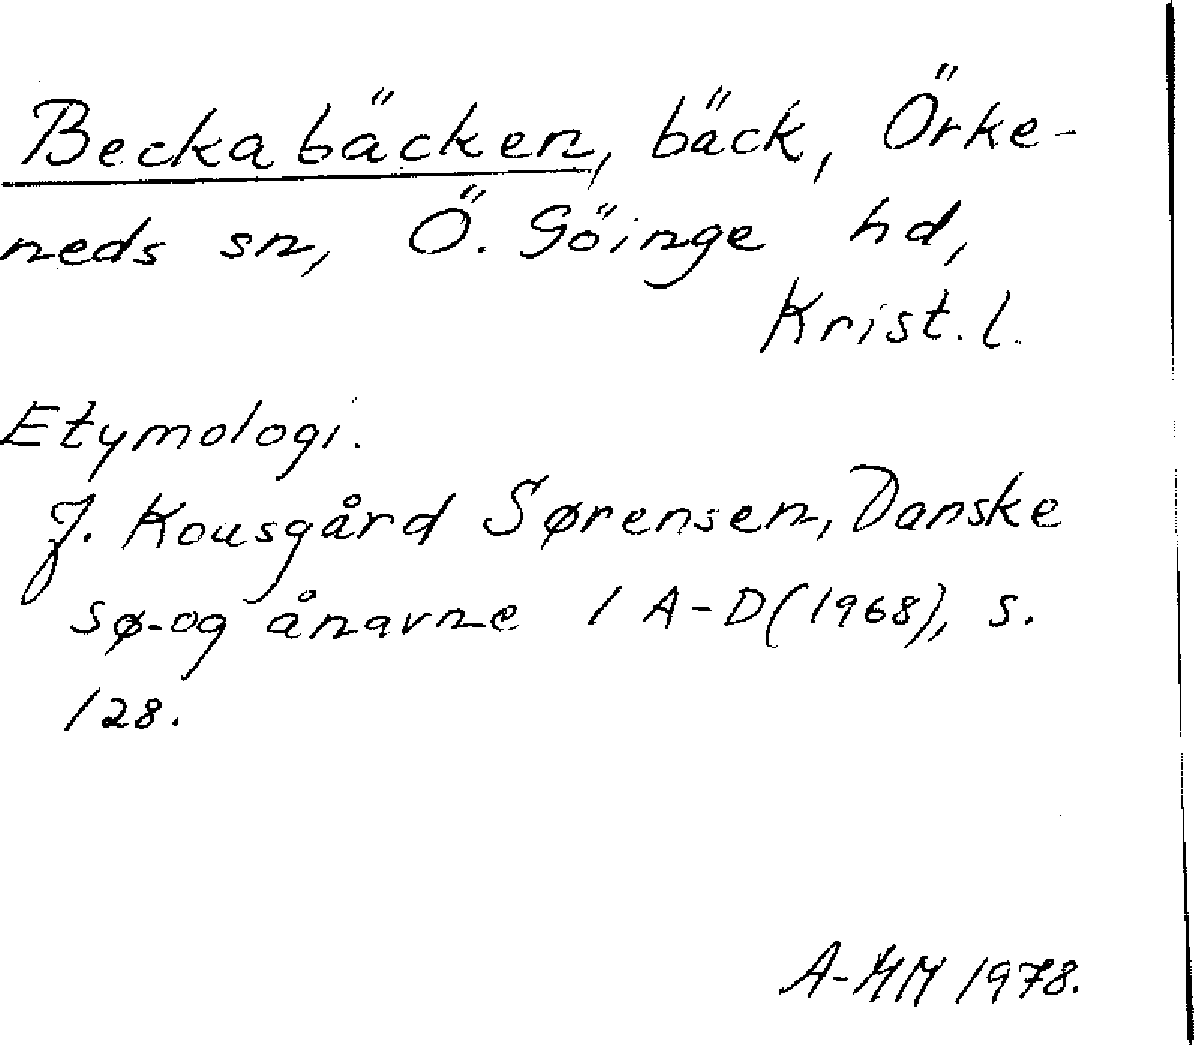 Beckabäcken, bäck, Örke-
neds sn, Ö. Göinge hd,
Krist. l.
Etymologi.
J. Kousgård Sørensen, Danske
sø- og ånavne 1 A-D (1968), s.
128.
A-MM 1978.